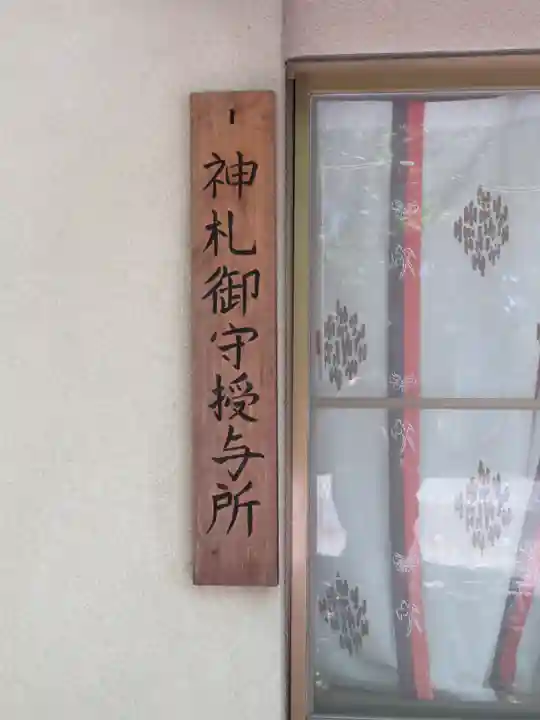 神札御守授与所